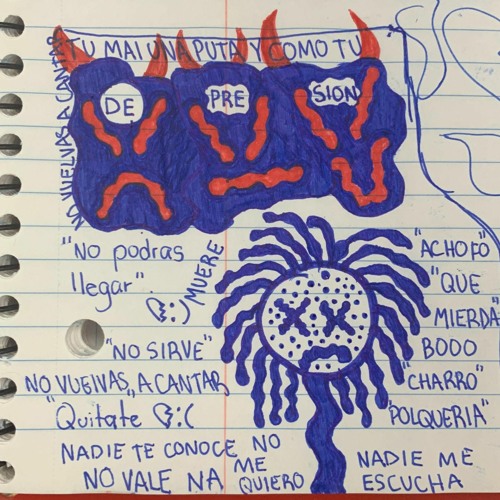 TU MAI UNA PUTA Y COMO TU
NO VUELVAS A CANTAR
DE
PRE
SION
"No podras
llegar".
:)
MUERE
"NO SIRVE"
NO VUELVAS, A CANTAR
"Quitate :(
NADIE TE CONOCE
NO VALE NA
NO
ME
QUIERO
"ACHOFO"
"QUE
MIERDA"
BOOO
"CHARRO"
"POLQUERIA"
NADIE ME
ESCUCHA